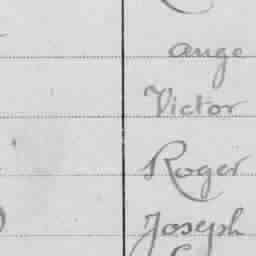 ange
Victor
Roger
Joseph